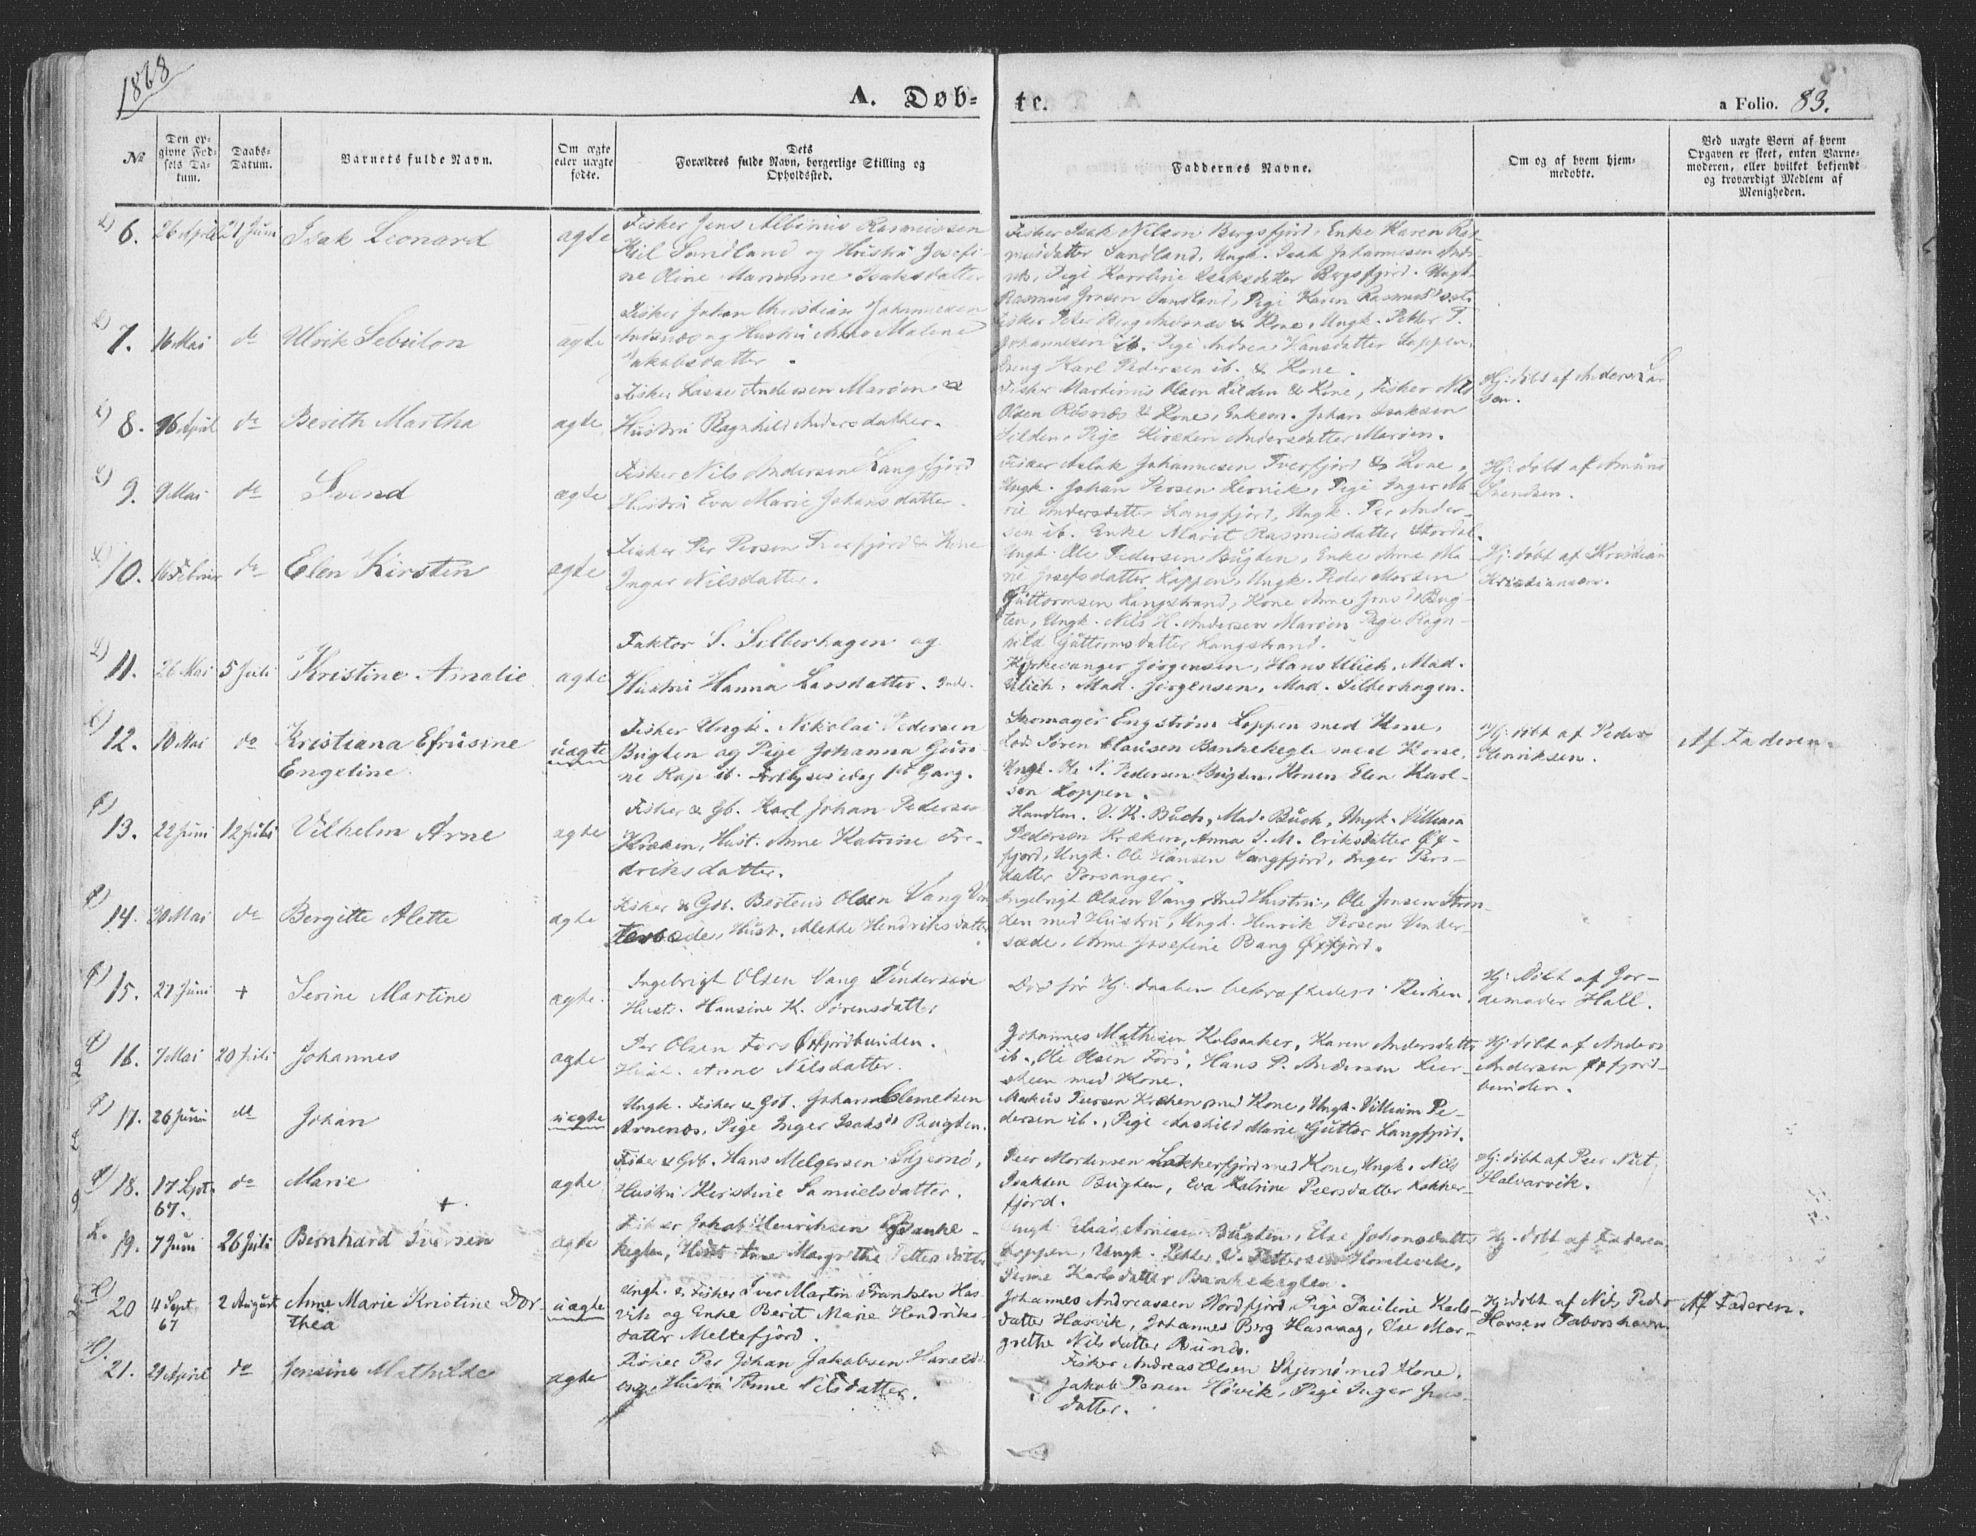 1868
A. Døb-
te.
a Folio. 83.
No
Den op-
givne Fød-
sels Da-
tum.
Daabs-
Datum.
Barnets fulde Navn.
Om ægte
eller uægte
fødte.
Dets
Forældres fulde Navn, borgerlige Stilling og
Opholdssted.
Faddernes Navne.
Om og af hvem hjem-
medøbte.
Ved uægte Børn af hvem
Opgaven er skeet, enten Barne-
moderen, eller hvilket bekjendt
og troværdigt Medlem af
Menigheden.
6. 26 April 21 Juni Isak Leonard ægte
Fisker Jens Albinius Rasmussen
Kiil Sandland og Hustru Josefi-
ne Oline Marianne Isaksdatter
Fisker Isak Nilsen Bergsfjord, Enke Karen Ras-
musdatter Sandland, Ungk. Isak Johannesen Ands-
nes, Pige Karoline Isaksdatter Bergsfjord. Ungk.
Rasmus Jensen Sandland, Pige Karen Rasmusdat.
7. 16 Mai do Ulrik Sebulon ægte
Fisker Johan Christian Johannesen
Andsnæs og Hustru Anne Malene
Jakobsdatter.
Fisker Peter Berg Andsnæs & Kone, Ungk. Petter P.
Johannesen ib. Pige Andrea Hansdatter Loppen,
Dreng Karl Pedersen ib. & Kone.
8. 16 April do Berith Martha ægte
Fisker Lasse Andersen Marøen &
Hustru Ragnhild Andersdatter.
Fisker Martinus Olsen Silden & Kone, Fisker Nils
Olsen Røsnæs & Kone, Enkem. Johan Isaksen
Silden, Pige Kirsten Andersdatter Marøen.
Hj. døbt af Anders Lar-
sen.
9. 9 Mai do Svend ægte
Fisker Nils Andersen Langfjord
Hustru Eva Marie Johansdatter.
Fisker Aslak Johannesen Tverfjord & Kone,
Ungk. Johan Persen Lervik, Pige Inger Ma-
rie Andersdatter Langfjord, Ungk. Per Ander-
sen ib. Enke Marit Rasmusdatter Stordal.
Hj. døbt af Amund
Svendsen.
10. 16 Februar do Elen Kirsten ægte
Fisker Per Persen Tverfjord & Kone
Inger Nilsdatter.
Ungk. Ole Pedersen Bugten, Enke Anne Ma-
rie Josefsdatter Loppen, Ungk. Peder Morsen
Guttormsen Langstrand, Kone Anne Jens d. Bug-
ten, Ungk. Nils H. Andersen Marøen Pige Ragn-
hild Guttormsdatter Langstrand.
Hj. døbt af Kristian
Kristiansen.
11. 26 Mai 5 Juli Kristine Amalie ægte
Faktor S. Silberhagen og
Hustru Hanna Larsdatter.
Kirkesanger Jørgensen, Hans Ulich, Mad.
Ulich, Mad. Jørgensen, Mad. Silberhagen.
12. 10 Mai do Kristiana Efrusine
Engeline uægte
Fisker Ungk. Nikolai Pedersen
Bugten og Pige Johanna Gusi-
ne Rap ib. Forlyses idag 1ste Gang.
Skomager Engstrøm Loppen med Kone,
Lods Søren Clausen Bankekegle med Kone,
Ungk. Ole N. Pedersen Bugten, Konen Elen Karl-
sen Loppen.
Hj. døbt af Peder
Henriksen.
Af Faderen.
13. 22 Juni 12 Juli Vilhelm Arne ægte
Fisker & Gb. Karl Johan Pedersen
Kræken, Hust. Anne Katrine Fre-
driksdatter.
Handlm. V. K. Buch, Mad. Buch, Ungk. Villiam
Pedersen Kræken, Anna S. M. Eriksdatter Øx-
fjord, Ungk. Ole Hansen Langfjord, Inger Pers-
datter Porsanger.
14. 30 Mai do Bergitte Alette ægte
Fisker & Gb. Berteus Olsen Vang Vin-
tersæde, Hust. Alette Hendriksdatter
Ingebrigt Olsen Vang med Hustru, Ole Jensen Stran-
den med Hustru, Ungk. Henrik Persen Vinter-
sæde, Anne Josefine Bang Øxfjord.
15. 27 Juni + Serine Martine ægte.
Ingebrigt Olsen Vang Vintersæde
Hustr. Hansine K. Sørensdatter
Død før Hj. daaben bekræftedes i Kirken.
Hj. døbt af Jor-
demoder Hall.
16. 7 Mai 20 Juli Johannes ægte
Per Olsen Fors Øxfjordbunden.
Hust. Anne Nilsdatter.
Johannes Mathisen Kolsaaker, Karen Andersdatter
ib., Ole Olsen Fors, Hans P. Andersen Lier-
med Kone.
Hj. døbt af Anders
Andersen Øxfjord-
bunden.
17. 26 Juni do Johan uægte
Ungk. Fisker & Gb. Johan Clemetsen
Arnenæs, Pige Inger Isaks d. Bugten.
Markus Persen Kræken med Kone, Ungk. Villiam Pe-
dersen ib., Pige Mashild Marie Guttor Langfjord.
18. 17 Sept.
67. do Marie ægte
Fisker & Gb. Hans Melgersen Skjernø,
Hustru Kerstine Samuelsdatter.
Peer Mortensen Lokkerfjord med Kone, Ungk. Nils
Isaksen Bugten, Eva Katrine Peersdatter Lokker-
fjord.
Hj. døbt af Peer Nil.
Halvarvik.
19. 7 Juni 26 Juli Bernhard Iversen + ægte
Fisker Jakob Henriksen Banke-
keglen, Hust. Ane Margrethe Pettersdatter
Ungk. Elias Arnesen Bugten, Else Johansdatter
Loppen, Ungk. Petter U. Pettersen Hamlevik,
Serine Karlsdatter Bankekeglen.
Hj. døbt af Faderen
20 4 Sept
67 2 August Anne Marie Kristine Dor-
thea uægte
Ungk. & Fisker Iver Martin Frantsen Has-
vik og Enke Berit Marie Hendriks-
datter Meltefjord.
Johannes Andreassen Nordfjord, Pige Pauline Karls-
datter Hasvik, Johannes Berg Hasvaag, Else Mar-
grethe Nilsdatter Bunds.
Hj. døbt af Nils Peder
Hansen Taborshavn.
Af Faderen.
21. 21 April do Jensine Mathilde ægte
Fisker Per Johan Jakobsen Harelds
Hustru Anne Nilsdatter.
Fisker Andreas Olsen Skjernø med Kone,
Jakob Persen Høvik, Pige Inger Jens-
datter.